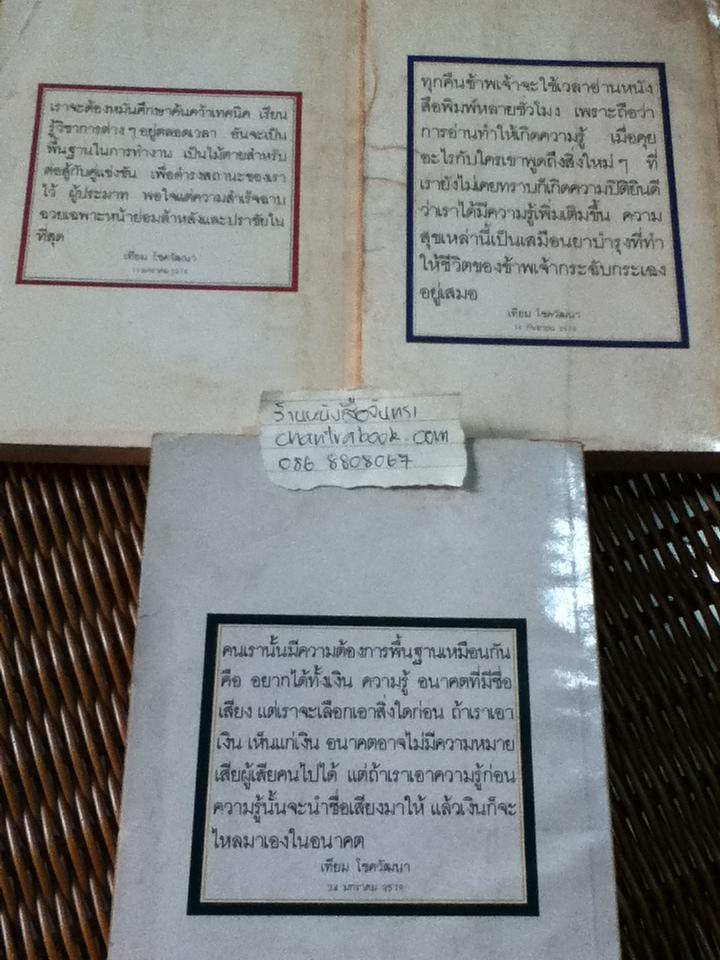 เราจะต้องหมั่นศึกษาค้นคว้าเทคนิค เรียน
รู้วิชาการต่าง ๆ อยู่ตลอดเวลา อันจะเป็น
พื้นฐานในการทำงาน เป็นไม้ตายสำหรับ
ต่อสู้กับคู่แข่งขัน เพื่อดำรงสถานะของเรา
ไว้ ผู้ประมาท พอใจแต่ความสำเร็จฉาบ
ฉวยเฉพาะหน้าย่อมล้าหลังและปราชัยใน
ที่สุด
เทียม โชควัฒนา
ทุกคืนข้าพเจ้าจะใช้เวลาอ่านหนัง
สือพิมพ์หลายชั่วโมง เพราะถือว่า
การอ่านทำให้เกิดความรู้ เมื่อคุย
อะไรกับใครเขาพูดถึงสิ่งใหม่ ๆ ที่
เรายังไม่เคยทราบก็เกิดความปิติยินดี
ว่าเราได้มีความรู้เพิ่มเติมขึ้น ความ
สุขเหล่านี้เป็นเสมือนยาบำรุงที่ทำ
ให้ชีวิตของข้าพเจ้ากระฉับกระเฉง
อยู่เสมอ
เทียม โชควัฒนา
ร้านหนังสือจันทรา
chantrabook.com
086 8808067
คนเรานั้นมีความต้องการพื้นฐานเหมือนกัน
คือ อยากได้ทั้งเงิน ความรู้ อนาคตที่มีชื่อ
เสียง แต่เราจะเลือกเอาสิ่งใดก่อน ถ้าเราเอา
เงิน เห็นแก่เงิน อนาคตอาจไม่มีความหมาย
เสียผู้เสียคนไปได้ แต่ถ้าเราเอาความรู้ก่อน
ความรู้นั้นจะนำชื่อเสียงมาให้ แล้วเงินก็จะ
ไหลมาเองในอนาคต
เทียม โชควัฒนา
มกราคม